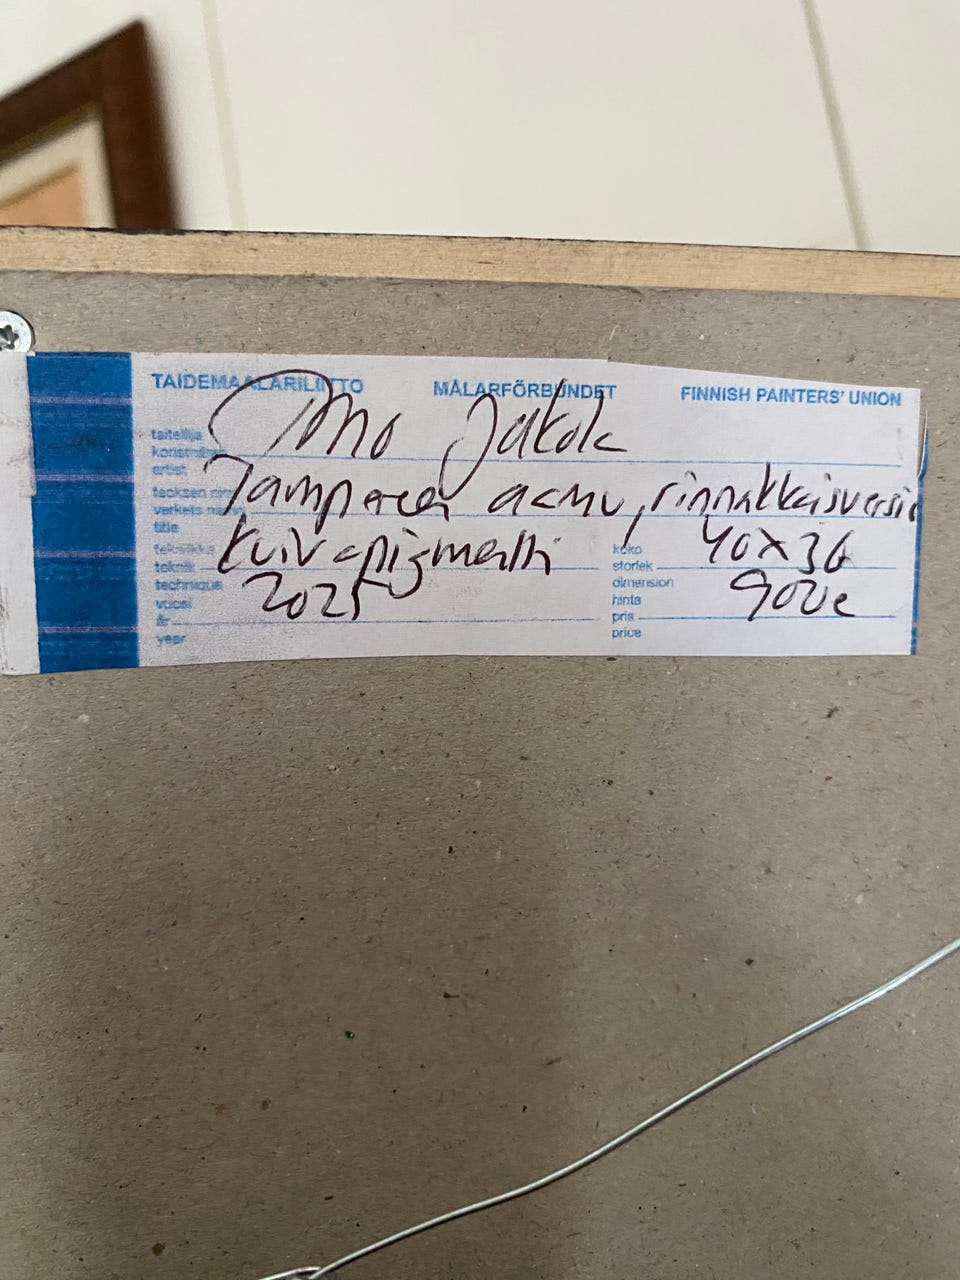 TAIDEMAALARILIITTO MÅLARFÖRBUNDET FINNISH PAINTERS' UNION
taiteilija
konstnär
artist
Jakola
teoksen nimi
verkets namn
title
Tampereen aamu, rinnakkaisversio
tekniikka
teknik
technique
Kuivapigmentti
koko
storlek
dimension
40x36
vuosi
år
year
2025
hinta
pris
price
900e